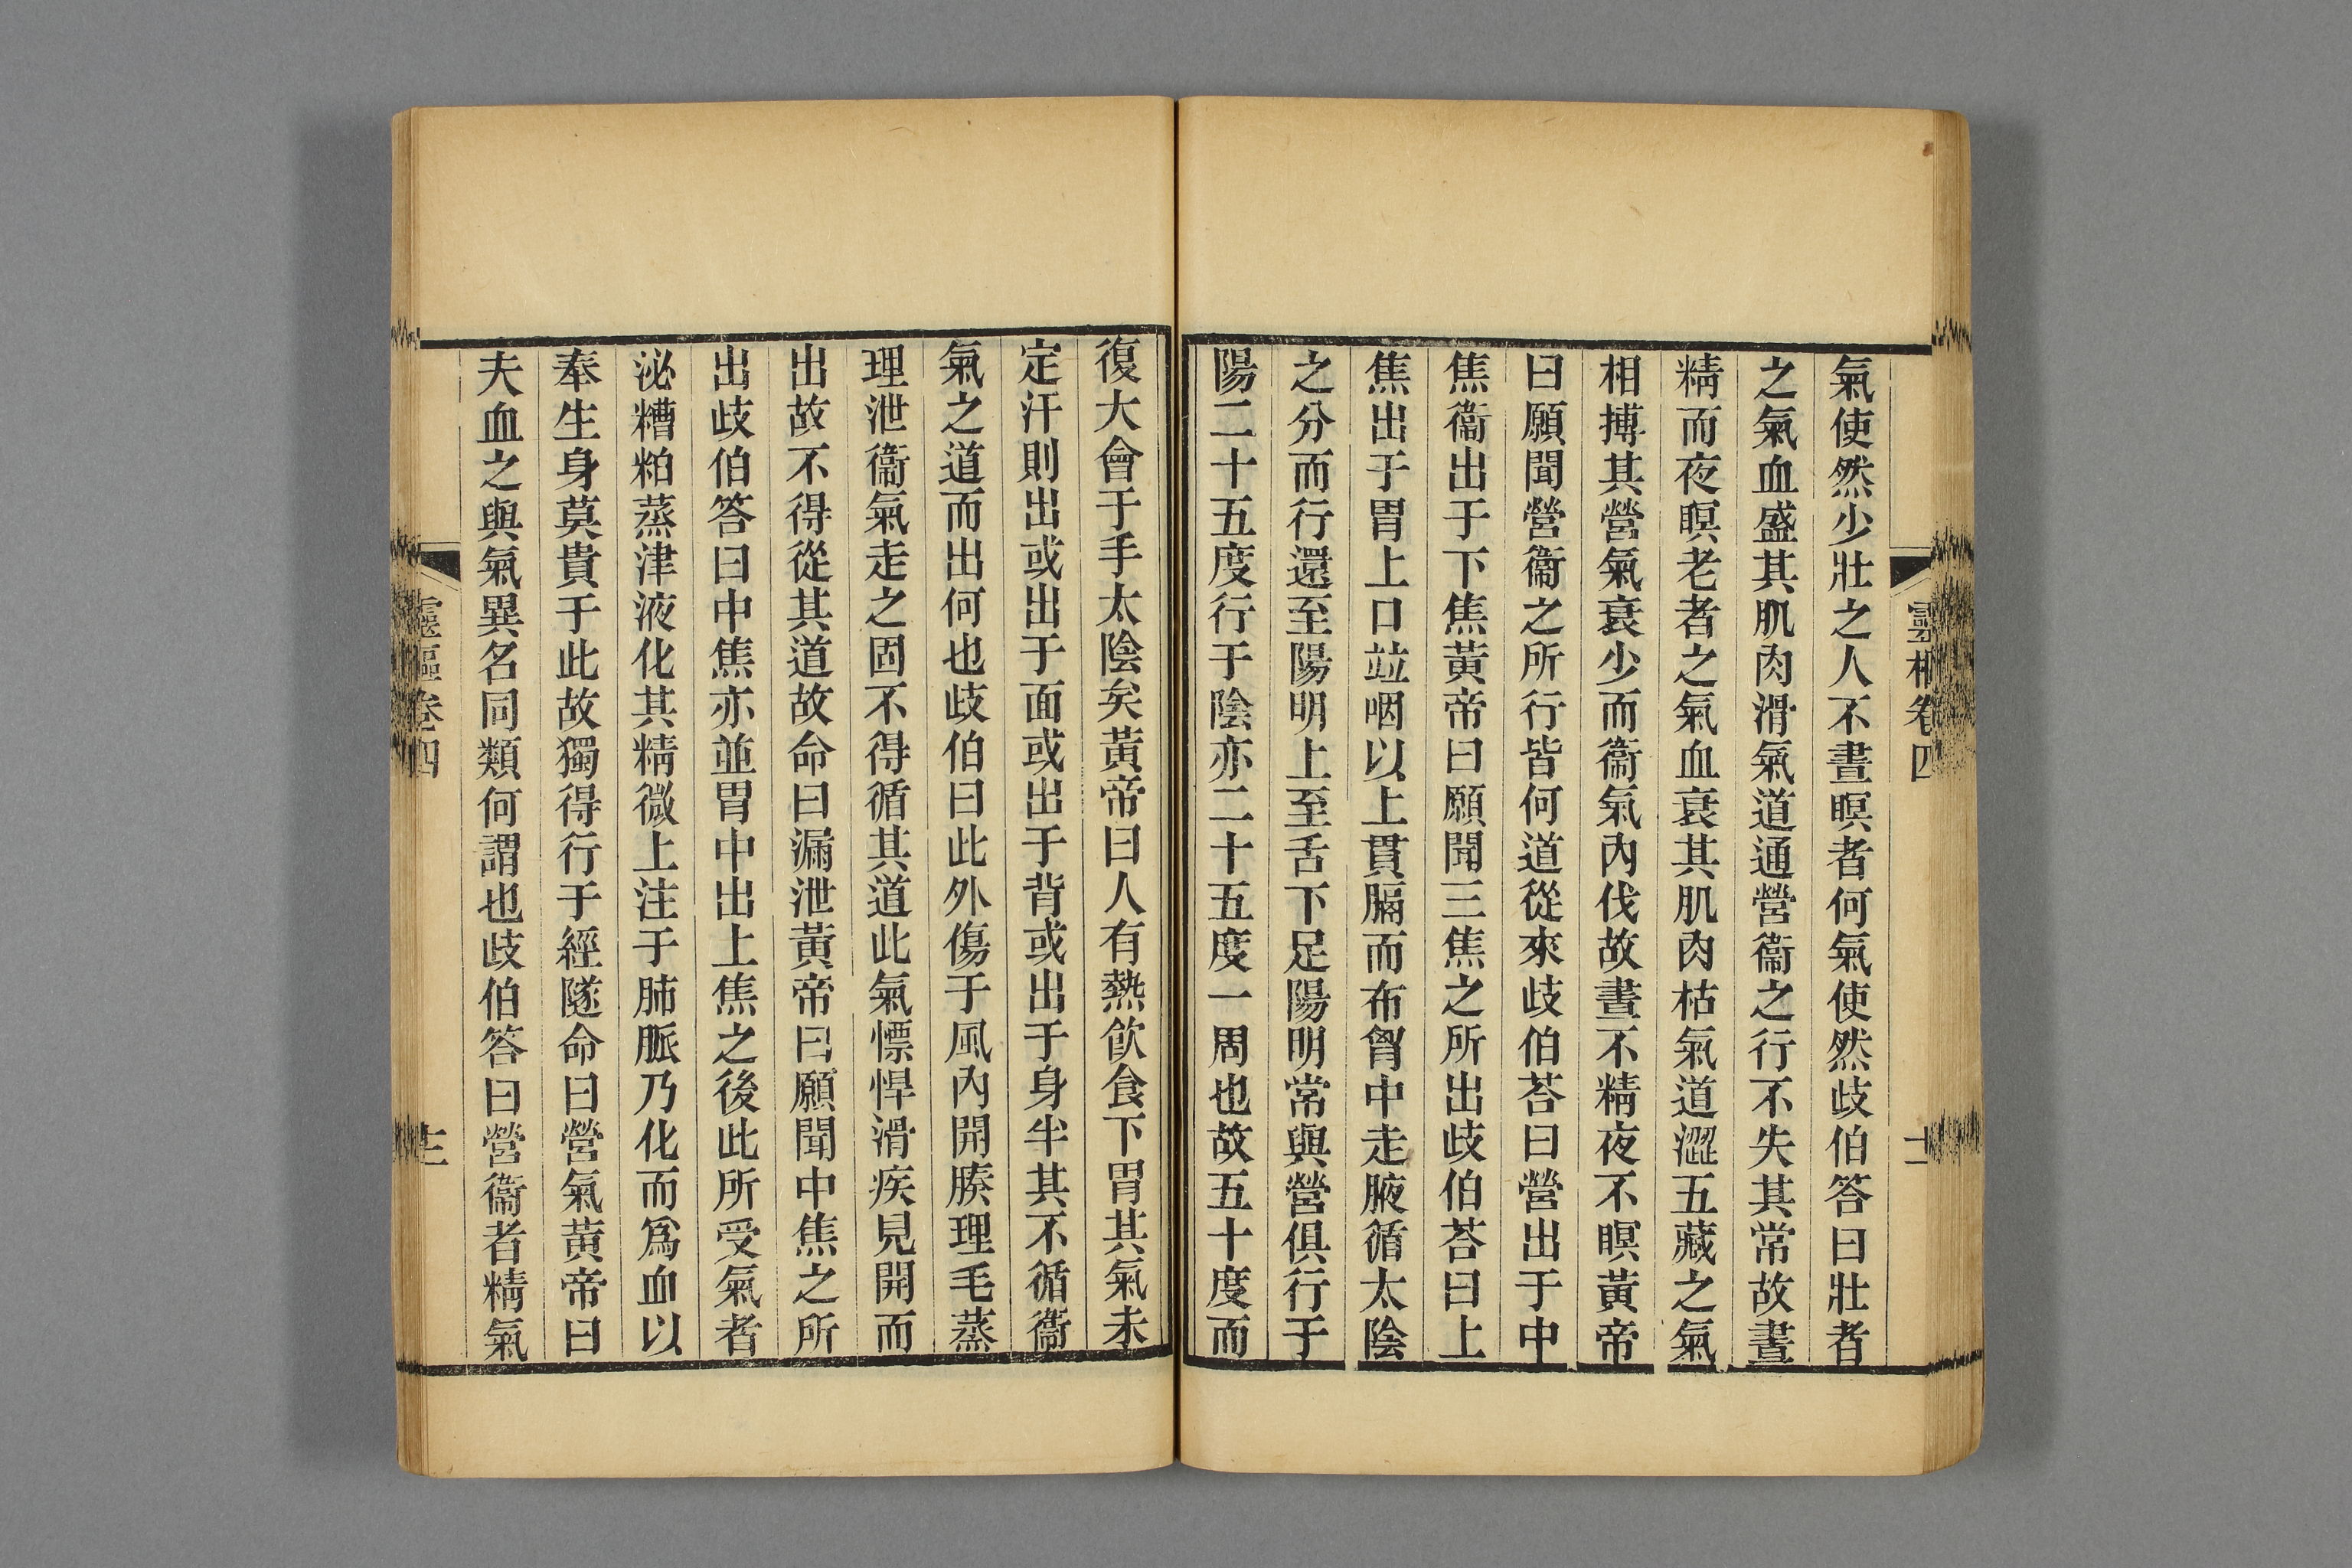 靈樞卷四
十二
氣使然少壯之人不晝瞑者何氣使然歧伯答曰壯者
之氣血盛其肌肉滑氣道通營衞之行不失其常故晝
精而夜瞑老者之氣血衰其肌肉枯氣道澀五藏之氣
相搏其營氣衰少而衞氣內伐故晝不精夜不瞑黃帝
曰願聞營衞之所行皆何道從來歧伯荅曰營出于中
焦衞出于下焦黃帝曰願聞三焦之所出歧伯荅曰上
焦出于胃上口竝咽以上貫膈而布胷中走腋循太陰
之分而行還至陽明上至舌下足陽明常與營俱行于
陽二十五度行于陰亦二十五度一周也故五十度而
復大會于手太陰矣黃帝曰人有熱飮食下胃其氣未
定汗則出或出于面或出于背或出于身半其不循衞
氣之道而出何也歧伯曰此外傷于風內開腠理毛蒸
理泄衞氣走之固不得循其道此氣慓悍滑疾見開而
出故不得從其道故命曰漏泄黃帝曰願聞中焦之所
出歧伯答曰中焦亦並胃中出上焦之後此所受氣者
泌糟粕蒸津液化其精微上注于肺脈乃化而爲血以
奉生身莫貴于此故獨得行于經隧命曰營氣黃帝曰
夫血之與氣異名同類何謂也歧伯答曰營衞者精氣
靈樞卷四